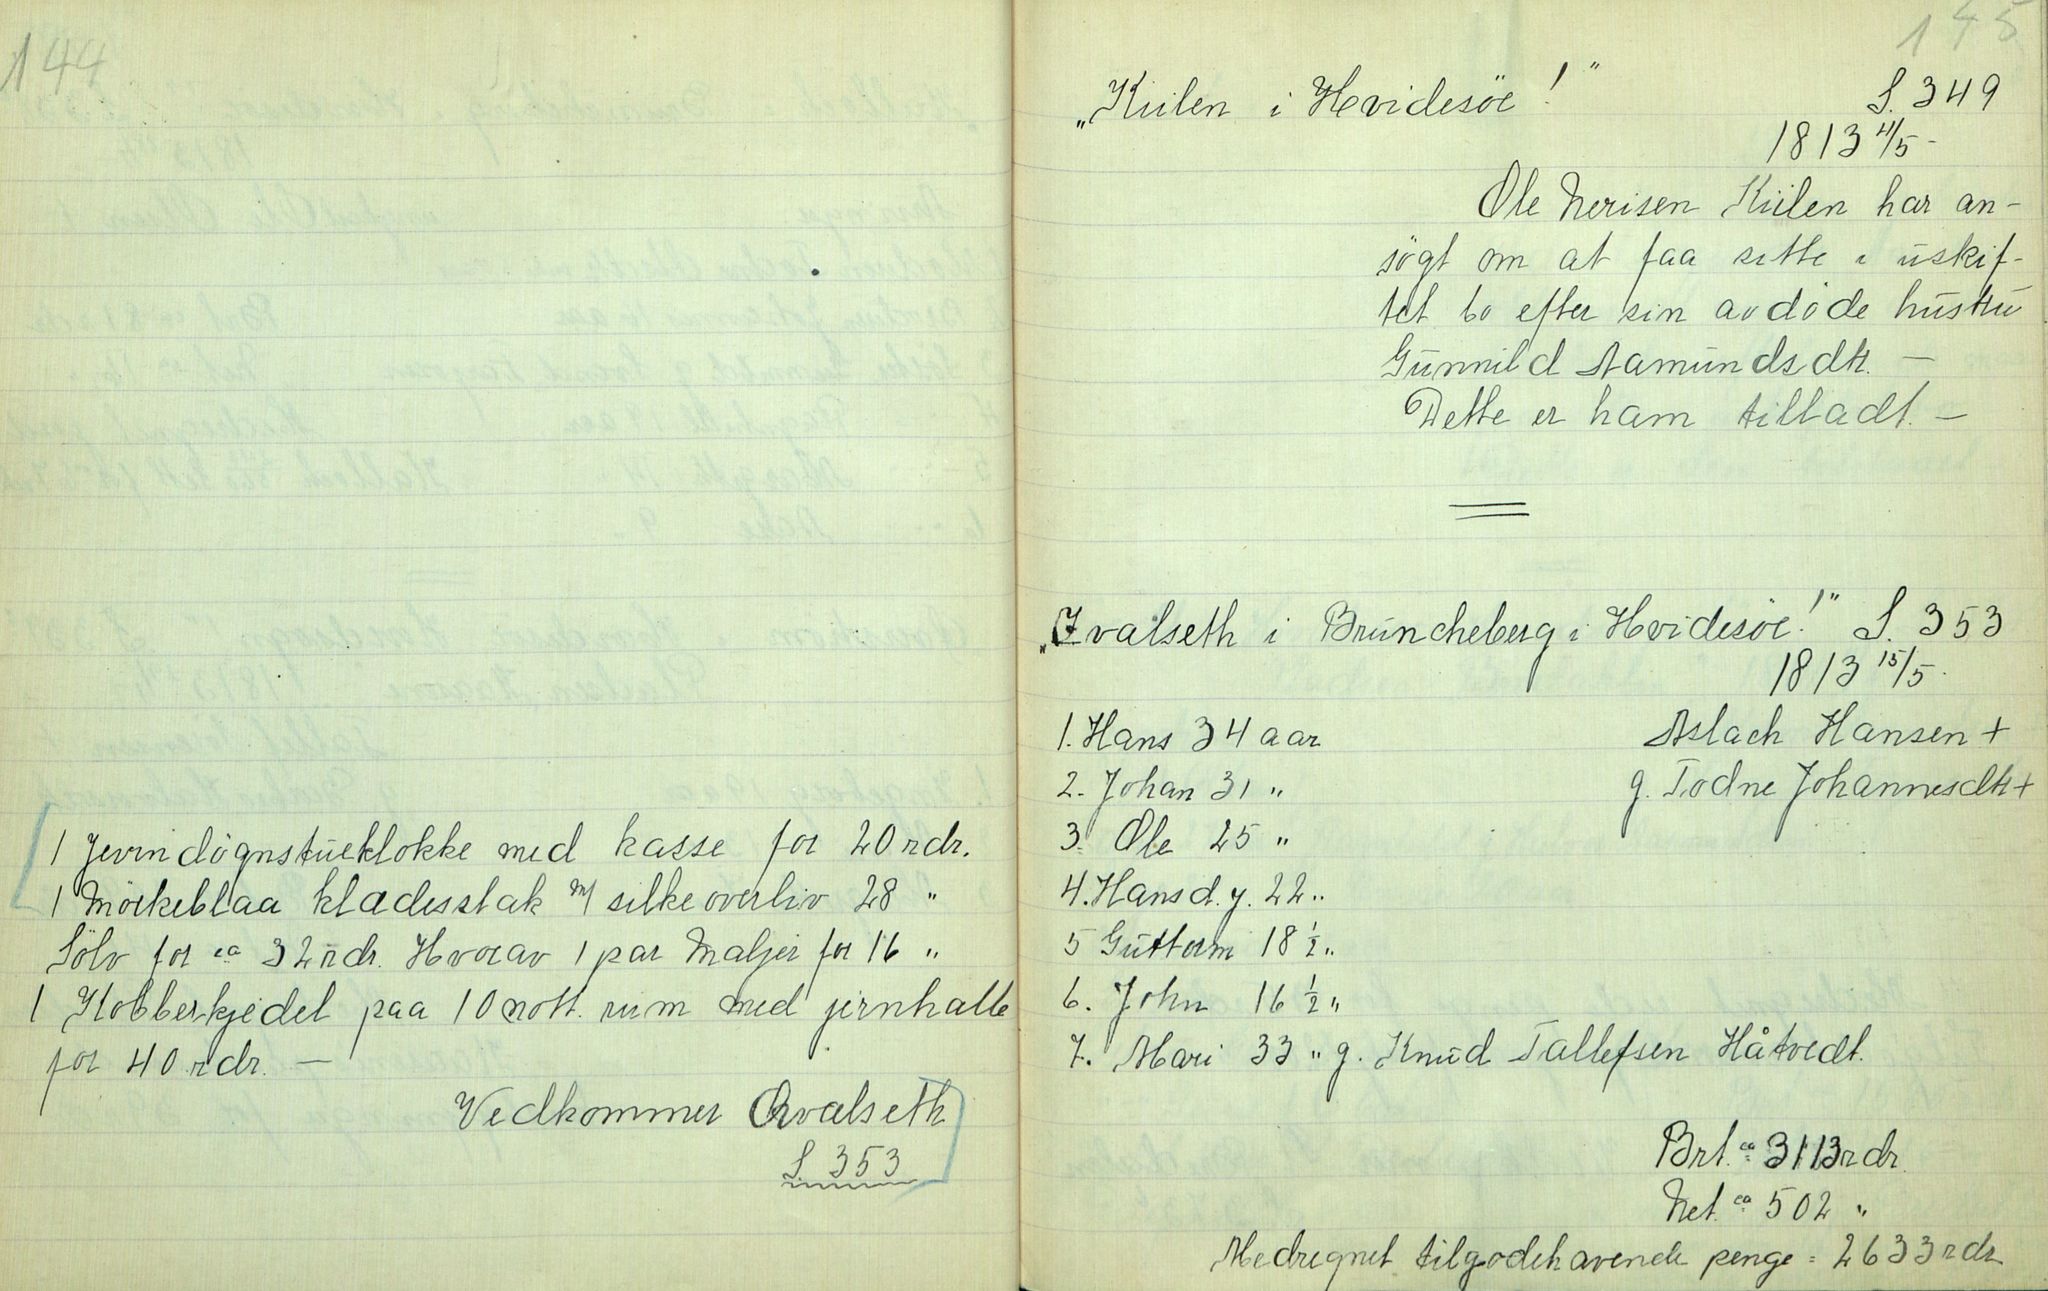 144
1 Jevndögnstueklokke med kasse for 20 rdr.
1 Mörkeblaa klædesstak m/ silkeoverliv 28 "
Sölv for ca 32 rdr. Hvorav 1 par maljer for 16 "
1 Kobberkjedel paa 10 nott. rum med jernhalle
for 40 rdr. —
Vedkommer Qvalseth
S. 353
145
"Kiilen i Hvidesöe!" S. 349
1813 11/5 -
Ole Nerisen Kiilen har an-
sögt om at faa sitte i uskif-
tet bo efter sin avdöde hustru
Gunnild Aamundsdtr. —
Dette er ham tilladt. —
"Ivalseth i Bruncheberg i Hvidesöe!" S. 353
1813 15/5.
1. Hans 34 aar Aslach Hansen +
2. Johan 31 " g. Todne Johannesdtr +
3. Ole 25 "
4. Hans d. y. 22 "
5 Guttorm 18 1/2 "
6. John 16 1/2 "
7. Mari 33 " g. Knud Tallefsen Håtvedt.
Brt. ca 3113 rdr.
Net. ca 502 "
Medregnet tilgodehavende penge = 2633 rdr